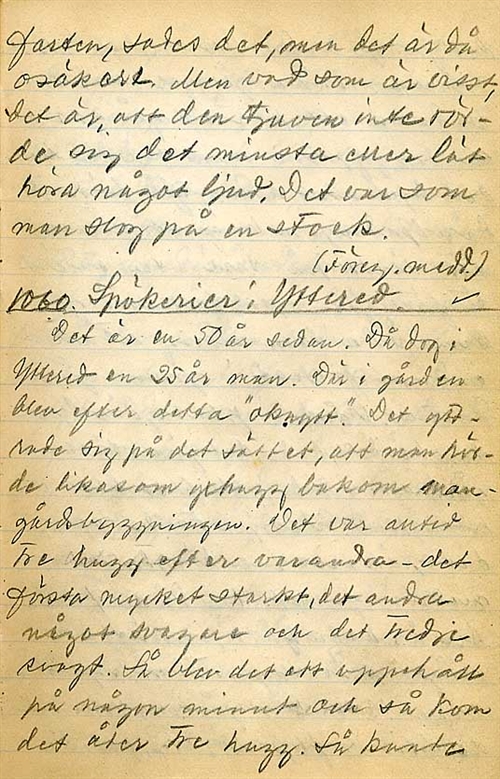 farten, sades det, men det är då
osäkert. Men vad som är visst,
det är, att den tjuven inte rör-
de sig det minsta eller lät
höra något ljud. Det var som
man slog på en stock.
(Föreg. medd.)
1060. Spökerier i Yttered. ✓
Det är en 50 år sedan. Då dog i
Yttered en 25 år man. Där i gården
blev efter detta "oknytt". Det ytt-
rade sig på det sättet, att man hör-
de likasom hugg bakom man-
gårdsbyggningen. Det var alltid
tre hugg efter varandra - det
första mycket starkt, det andra
något svagare och det tredje
svagt. Så blev det ett uppehåll
på någon minut och så kom
det åter tre hugg. Så kunde